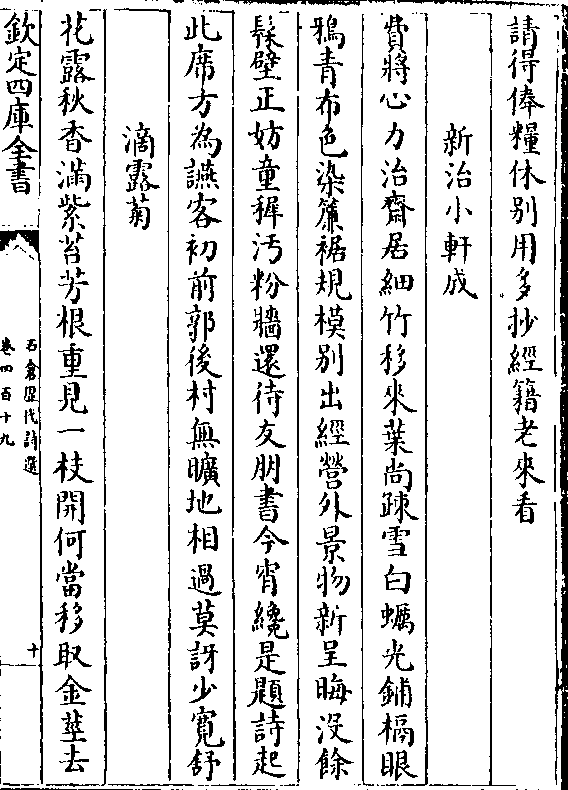 請得俸糧休别用多抄經籍老來看
新治小軒成
費將心力治齋居細竹移來葉尚踈雪白蠣光鋪槅眼
鴉青布色染簾裾規模别出經營外景物新呈晦没餘
髹壁正妨童穉汚粉牆還待友朋書今宵纔是題詩起
此席方為讌客初前郭後村無曠地相過莫訝少寛舒
滴露菊
花露秋香滿紫苔芳根重見一枝開何當移取金莖去
欽定四庫全書
石倉歷代詩選
卷四百十九
十